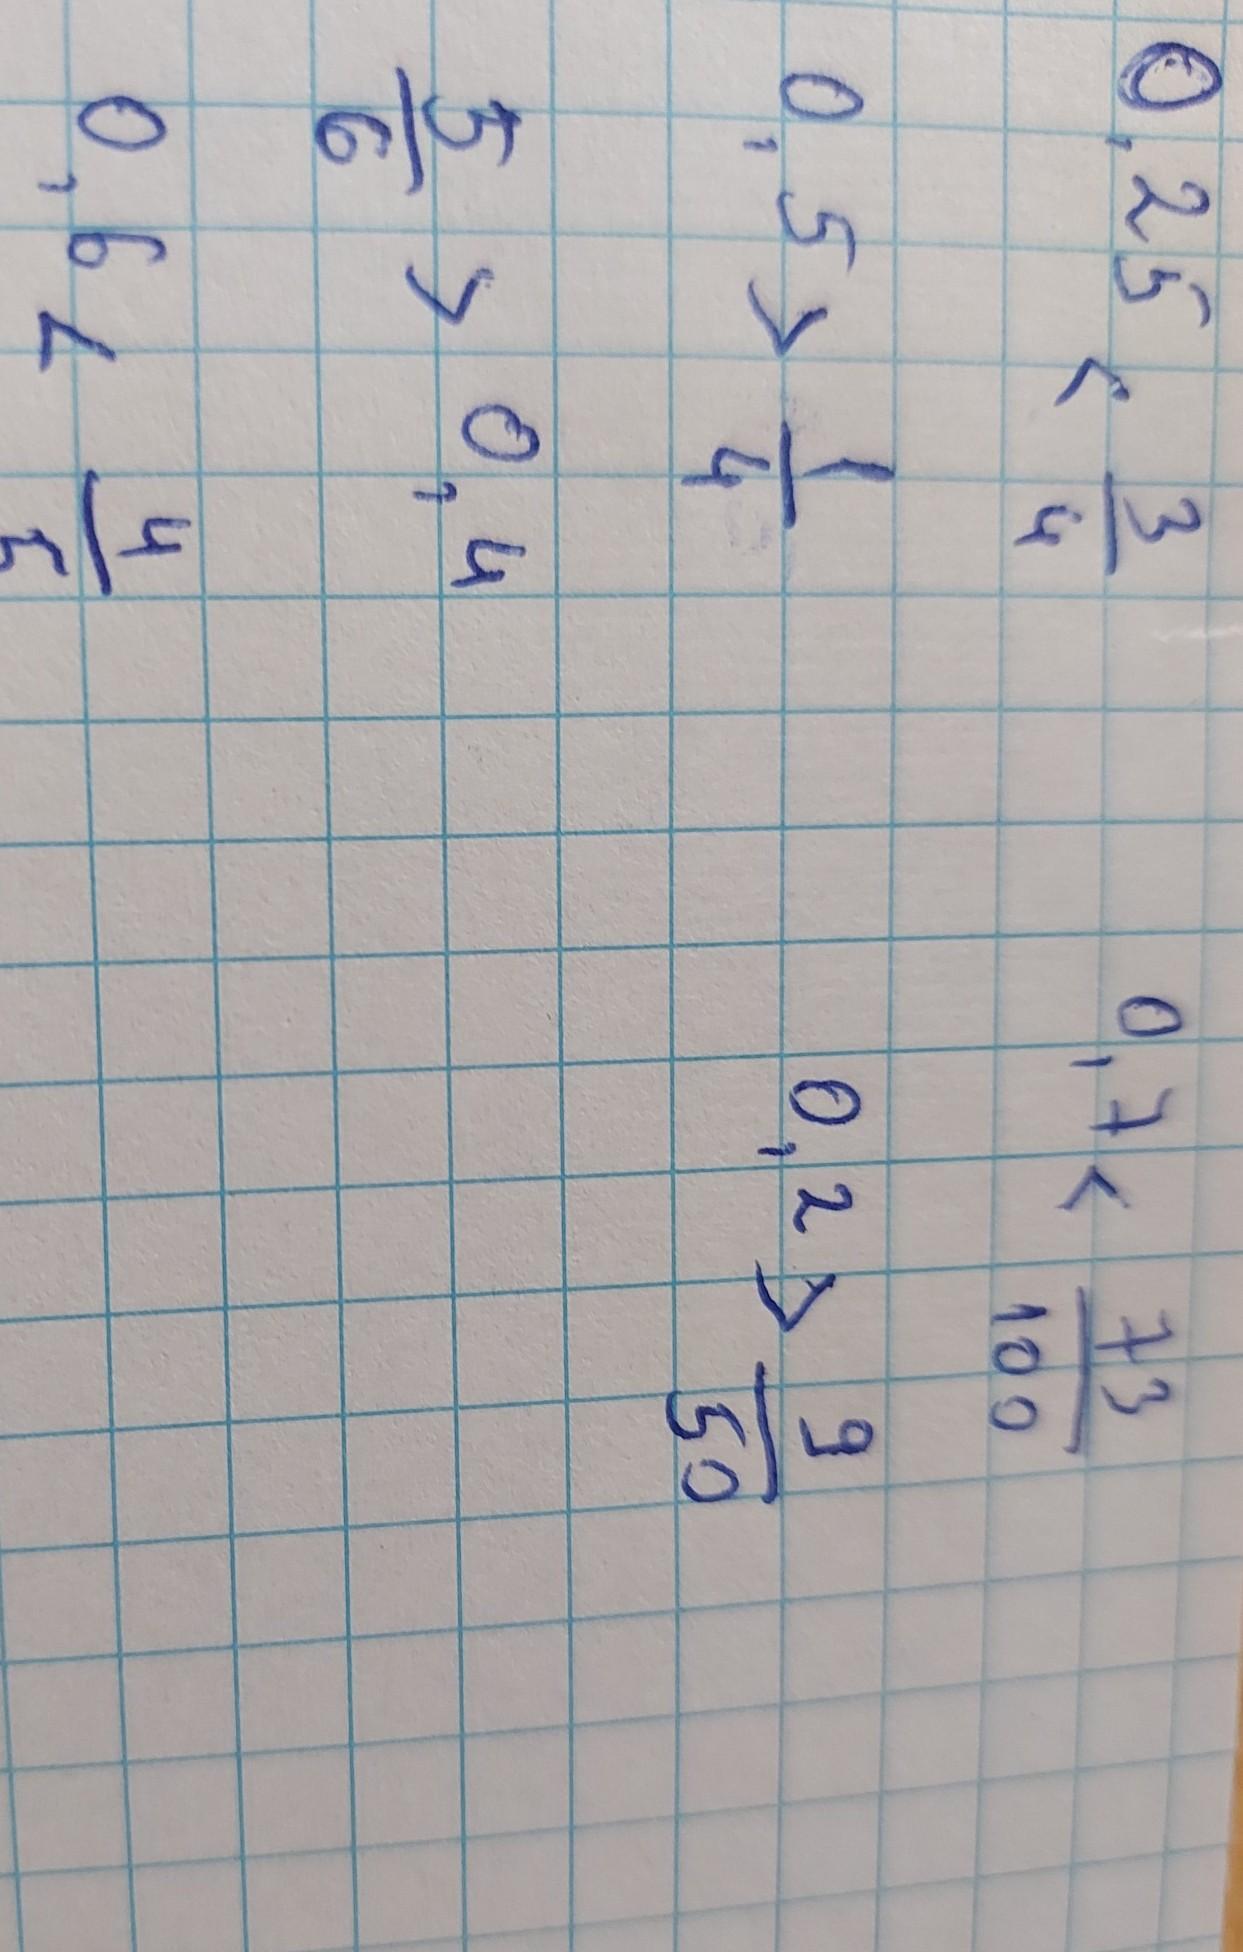 0,25 < 3/4 0,7 < 73/100
0,5 > 1/4 0,2 > 9/50
5/6 > 0,4
0,6 < 4/5